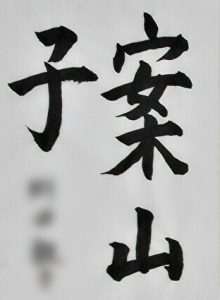 案山
子